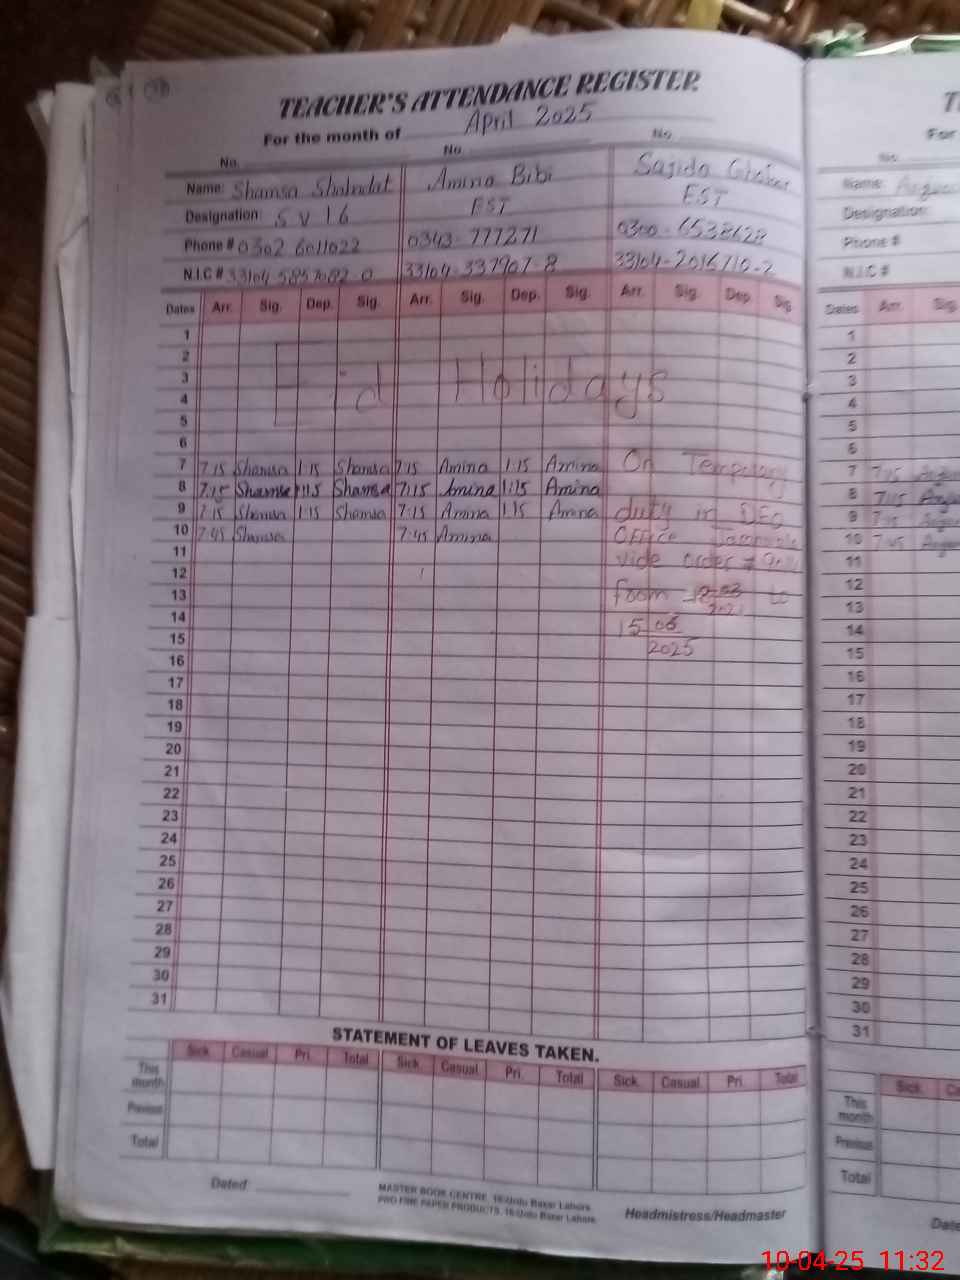 TEACHER'S ATTENDANCE REGISTER
For the month of April 2025
No. No. No.
Name: Shamsa Shahadat Amina Bibi Sajida
Designation: S V 16 EST EST
Phone # 0302 6011022 0343-777271 0300-6538628
N.I.C # 33104-5857082-0 33104-337907-8 33104-2016710-2
Dates Arr. Sig. Dep. Sig. Arr. Sig. Dep. Sig. Arr. Sig. Dep. Sig.
1
2
3 Eid Holidays
4
5
6
7 7:15 Shamsa 1:15 Shamsa 7:15 Amina 1:15 Amina On
8 7:15 Shamsa 1:15 Shamsa 7:15 Amina 1:15 Amina
9 7:15 Shamsa 1:15 Shamsa 7:15 Amina 1:15 Amina duty in DEO
10 7:45 Shamsa 7:45 Amina Office
11 vide order #
12
13 from to
14 15 06
15 2025
16
17
18
19
20
21
22
23
24
25
26
27
28
29
30
31
STATEMENT OF LEAVES TAKEN.
Sick Casual Pri. Total Sick. Casual Pri. Total Sick. Casual Pri. Total
This month
Previous
Total
Dated:
MASTER BOOK CENTRE, 16-Urdu Bazar Lahore.
PRO FINE PAPER PRODUCTS, 16-Urdu Bazar Lahore.
Headmistress/Headmaster
T
For
No.
Name:
Designation:
Phone #
N.I.C #
Dates Arr. Sig.
1
2
3
4
5
6
7 7:15
8 7:15
9 7:15
10 7:45
11
12
13
14
15
16
17
18
19
20
21
22
23
24
25
26
27
28
29
30
31
Sick
This month
Previous
Total
10-04-25 11:32